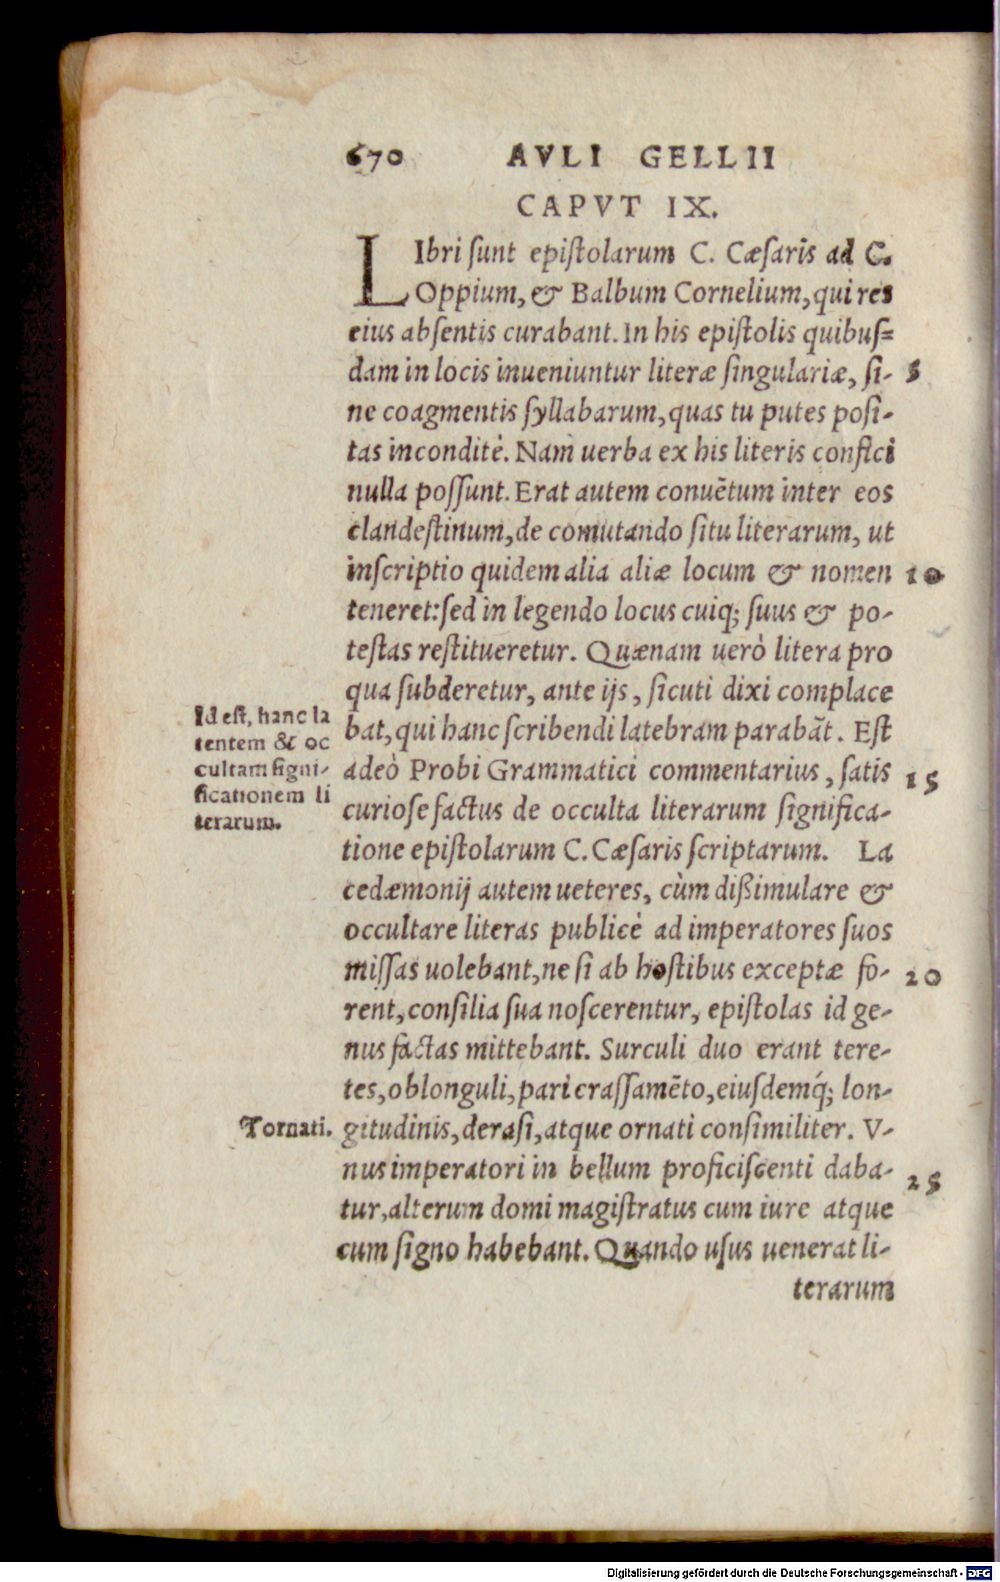 670 AVLI GELLII
CAPVT IX.
LIbri ſunt epiſtolarum C. Cæſaris ad C.
Oppium, & Balbum Cornelium, qui res
eius abſentis curabant. In his epiſtolis quibuſ=
dam in locis inueniuntur literæ ſingulariæ, ſi- 5
ne coagmentis ſyllabarum, quas tu putes poſi-
tas inconditè. Nam uerba ex his literis confici
nulla poſſunt. Erat autem conuẽtum inter eos
clandeſtinum, de comutando ſitu literarum, ut
inſcriptio quidem alia aliæ locum & nomen 10
teneret: ſed in legendo locus cuiq; ſuus & po-
teſtas reſtitueretur. Quænam uerò litera pro
qua ſubderetur, ante ijs, ſicuti dixi complace
bat, qui hanc ſcribendi latebram parabãt. Eſt
adeò Probi Grammatici commentarius, ſatis 15
curioſe factus de occulta literarum ſignifica-
tione epiſtolarum C. Cæſaris ſcriptarum. La
cedæmonij autem ueteres, cùm dißimulare &
occultare literas publicè ad imperatores ſuos
miſſas uolebant, ne ſi ab hoſtibus exceptæ fo- 20
rent, conſilia ſua noſcerentur, epiſtolas id ge-
nus factas mittebant. Surculi duo erant tere-
tes, oblonguli, pari craſſamẽto, eiuſdemq́; lon-
gitudinis, deraſi, atque ornati conſimiliter. V-
nus imperatori in bellum proficiſcenti daba- 25
tur, alterum domi magiſtratus cum iure atque
cum ſigno habebant. Quando uſus uenerat li-
terarum
Id eſt, hanc la
tentem & oc
cultam ſigni-
ficationem li
terarum.
Tornati.
Digitalisierung gefördert durch die Deutsche Forschungsgemeinschaft - DFG